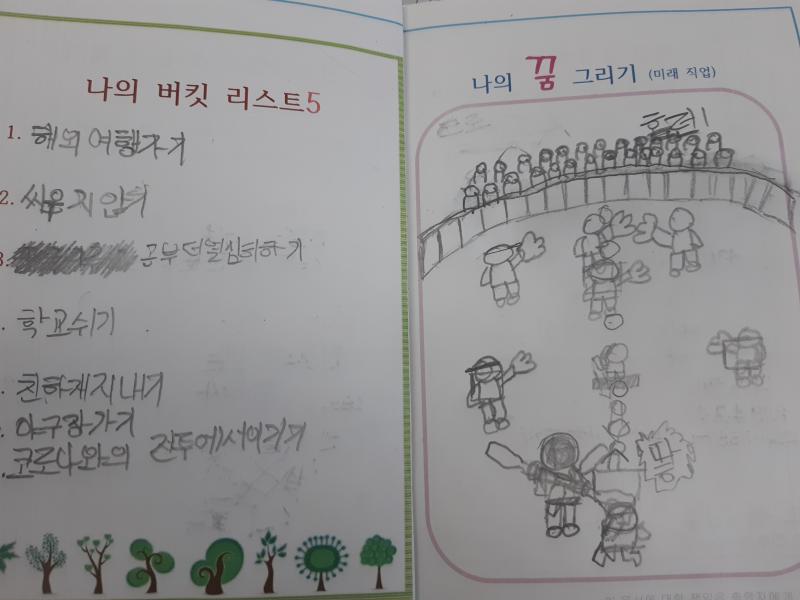 나의 버킷 리스트5
1. 해외 여행가기
2. 싸우지 안기
3. 공부 더 열심히하기
학교쉬기
친하게지내기
야구장가기
코로나와의 전투에서이기기
나의 꿈 그리기 (미래 직업)
딱